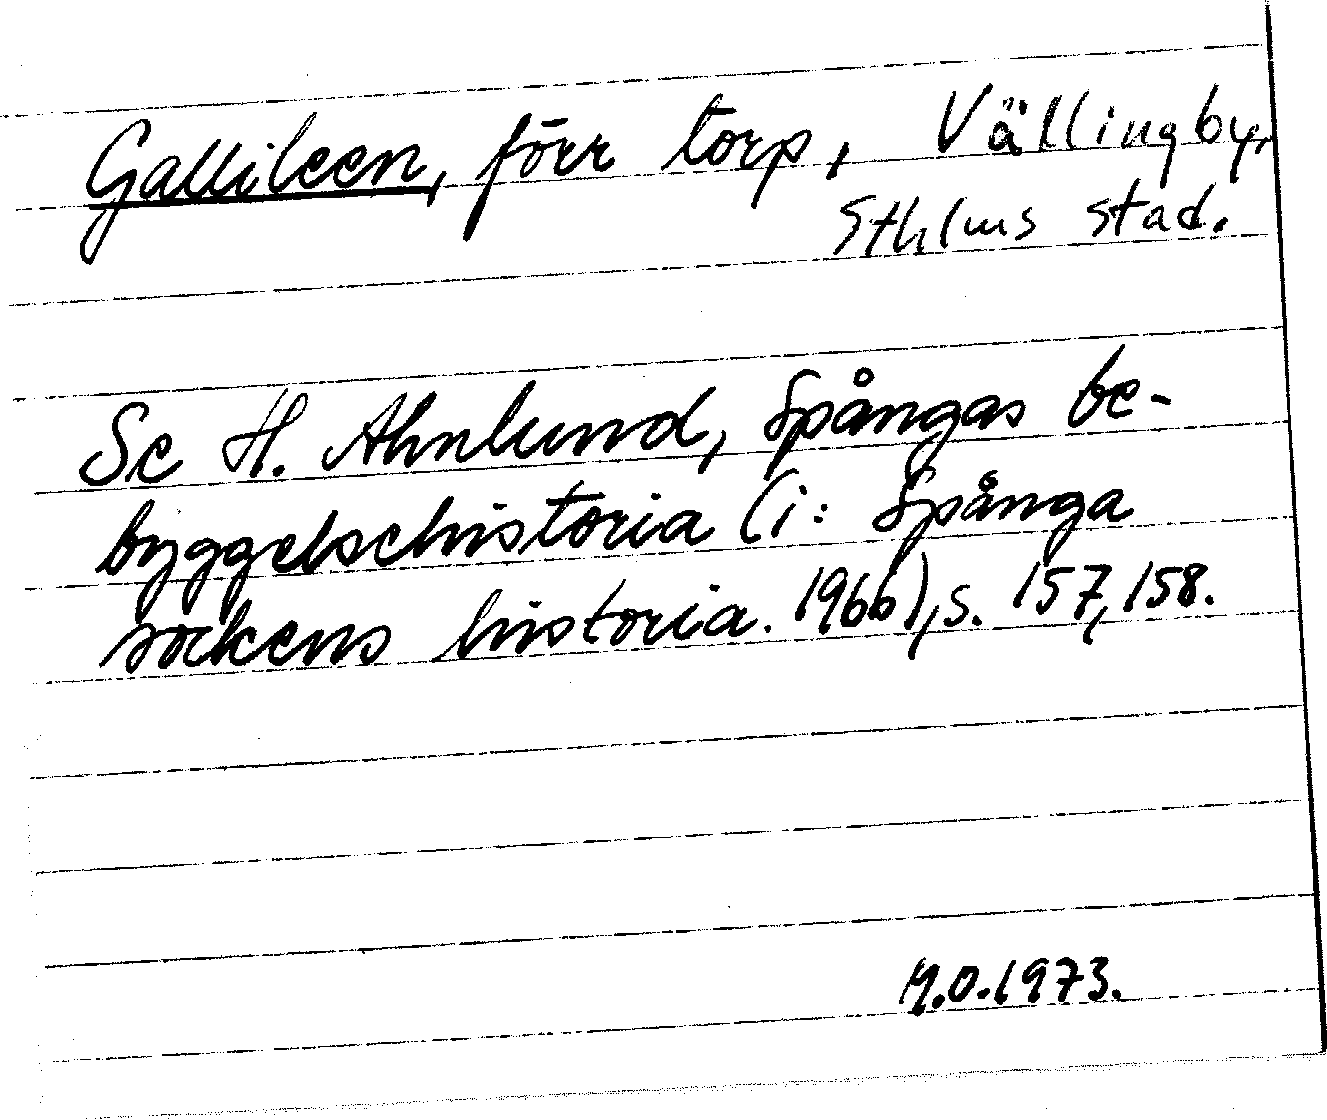 Gallileen, förr torp, Vällingby,
Sthlms stad.
Se H. Ahnlund, Spångas be-
byggelsehistoria (i: Spånga
sockens historia. 1966), s. 157, 158.
M.O. 1973.